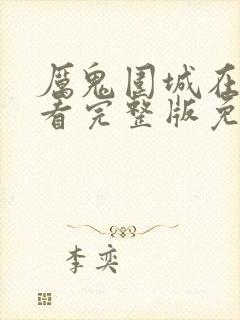 厲鬼围城在
看完整版免
李奕